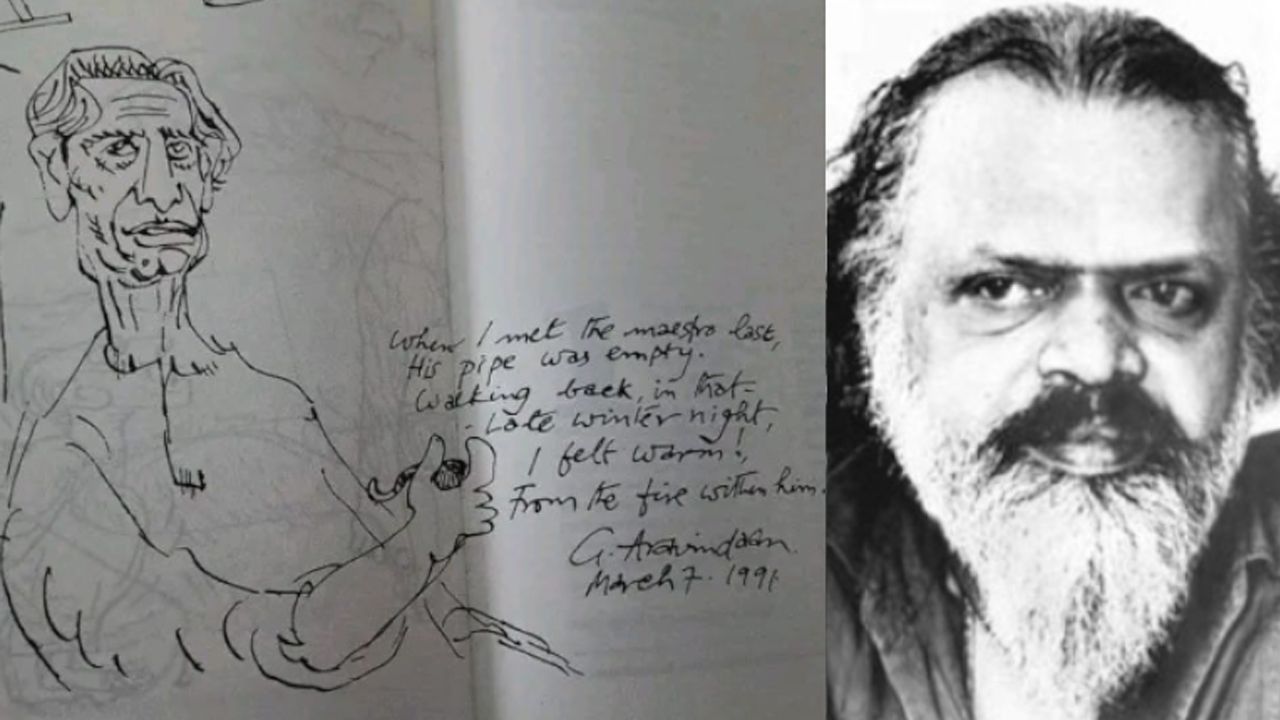 When I met the maestro last,
His pipe was empty.
Walking back, in that-
- Late winter night,
I felt warm!,
From the fire within him.
G. Aravindan.
March 7. 1991